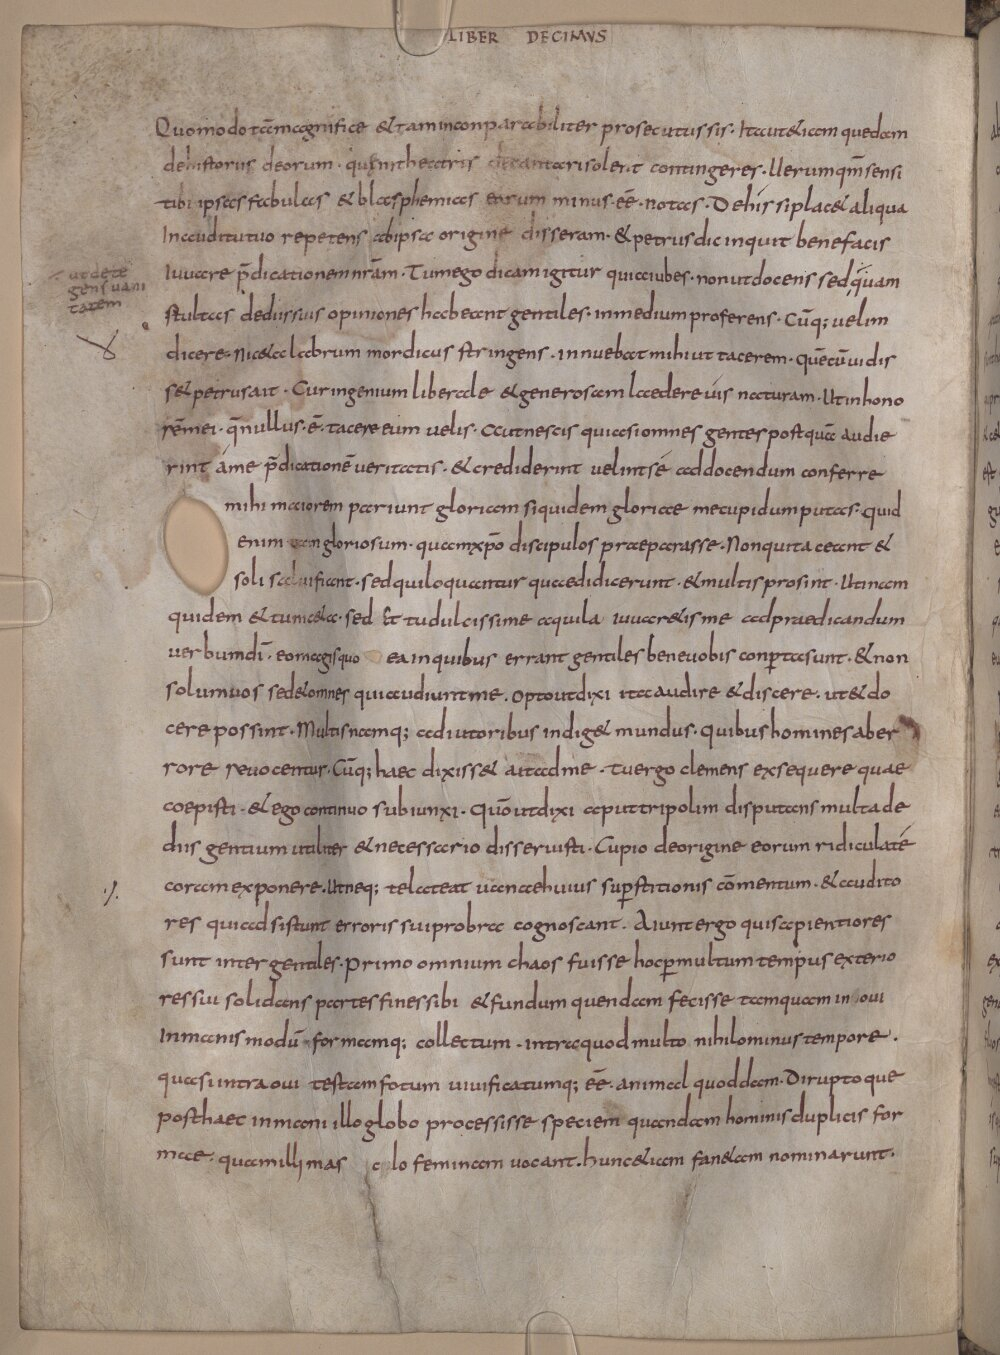 LIBER DECIMUS
Quomodo tam magnifice & tam inconparabiliter prosecutus sis. Ita ut & iam quedam
de histortis deorum. que in theatris decantari solent contingeres. Uerum qm̄ sensi
tibi ipsas fabulas & blasphemias eorum minus. eē. notas. De his si plac& aliqua
In auditu tuo repetens ab ipsa origine disseram. & petrus dic inquit bene facis
Iuuare p̄dicationem nr̄am. Tum ego dicam igitur quia iubes. non ut docens sed q̄uam
ut dete
gens uani
tatem
stultas de diis suis opiniones habeant gentiles. in medium proferens. Cūq; uelim
dicere. Nic&a labrum mordicus stringens. innuebat mihi ut tacerem. quē cū uidis
s& petrus ait. Cur ingenium liberale & generosam laedere uis naturam. Ut in hono
rē mei. q̄ nullus. ē. tacere eum uelis. Aut nescis quia si omnes gentes postquā audie
rint áme p̄dicationē ueritatis. & crediderint uelint sé ad docendum conferre
mihi maiorem pariunt gloriam si quidem gloriae me cupidum putas. Quid
enim tam gloriosum. quam xp̄o discipulos praeparasse. Non qui taceant &
soli saluificant. sed qui loquantur quae didicerunt. & multis prosint. Utinam
quidem & tu nic&a. sed & tu dulcissime aquila iuuar&is me ad praedicandum
uerbum dī. eo magis quo ea in quibus errant gentiles bene uobis conp̄ta sunt. & non
solum uos sed & omnes qui audiunt me. opto ut dixi ita audire & discere. ut & do
cere possint. Multis namq; adiutoribus indig& mundus. quibus homines ab er
rore reuocentur. Cūq; haec dixiss& ait ad me. Tu ergo clemens exsequere quae
coepisti. & ego continuo subiunxi. Quō ut dixi aput tripolim disputans multa de
diis gentium utiliter & necessario disseruisti. Cupio de origine eorum ridicula té
coram exponere. Ut neq; te lateat uanae huius sup̄stitionis cōmentum. & audito
res qui adsistunt erroris sui probra cognoscant. Aiunt ergo qui sapientiores
sunt inter gentiles. Primo omnium chaos fuisse hoc per multum tempus exterio
res sui solidans partes fines sibi & fundum quendam fecisse tamquam in oui
Inmanis modū formamq; collectum. intra quod multo nihilominus tempore.
quasi intra oui testam fotum uiuificatumq; eē. animal quoddam. Dirupto que
post haec inmani illo globo processisse speciem quandam hominis duplicis for
mae. quam illi mas colo feminam uocant. hunc & iam fan&am nominarunt.